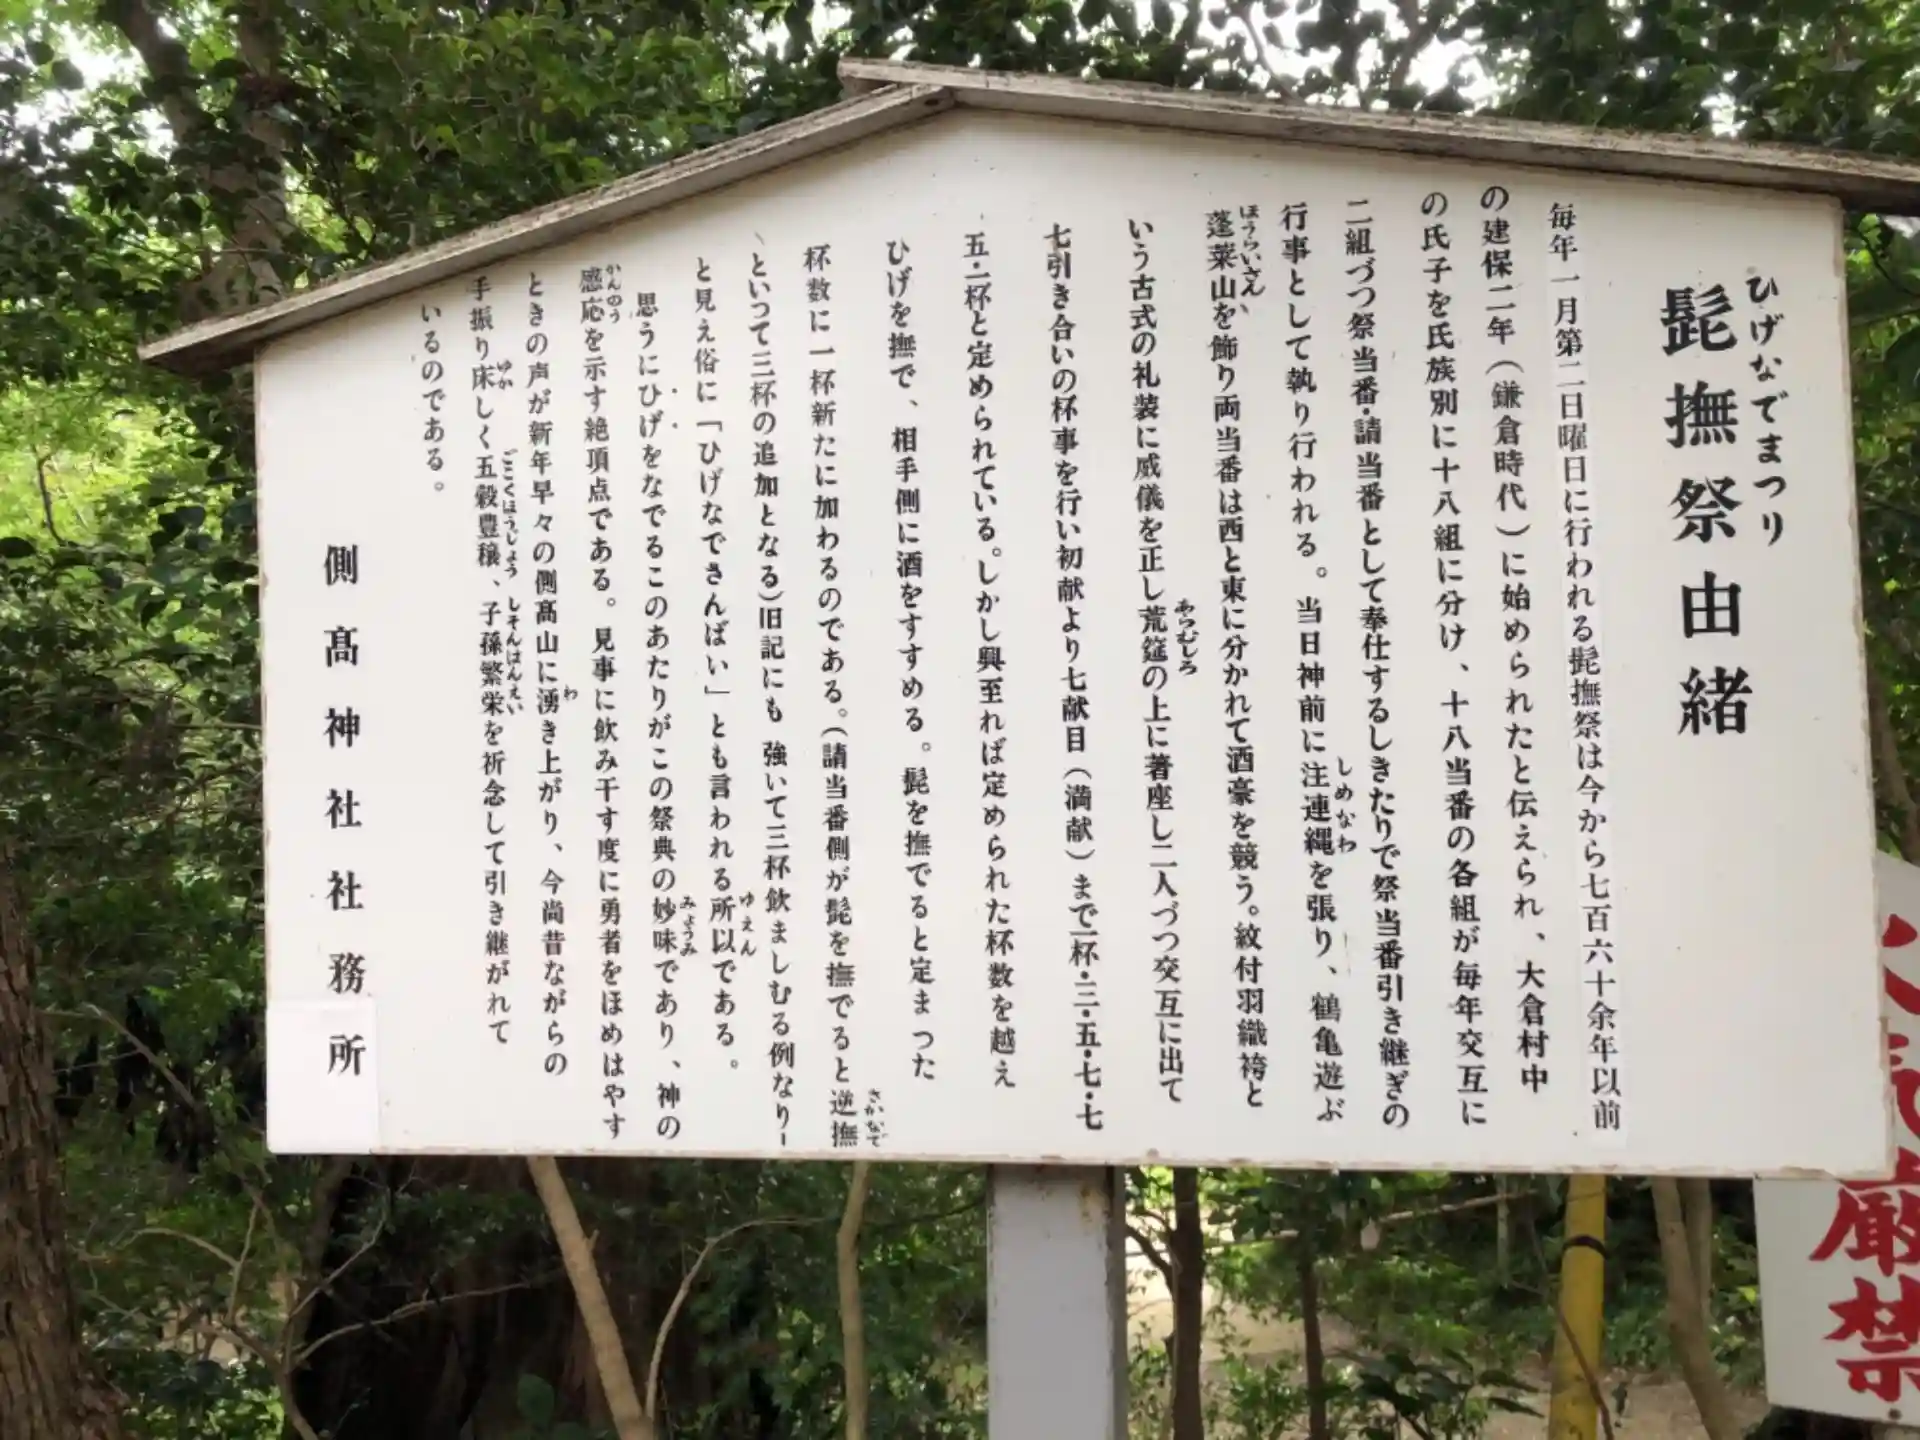 ひげなでまつり
髭撫祭由緒
毎年一月第二日曜日に行われる髭撫祭は今から七百六十余年以前
の建保二年（鎌倉時代）に始められたと伝えられ、大倉村中
の氏子を氏族別に十八組に分け、十八当番の各組が毎年交互に
二組づつ祭当番・請当番として奉仕するしきたりで祭当番引き継ぎの
行事として執り行われる。当日神前に注連縄を張り、鶴亀遊ぶ
しめなわ
蓬莱山を飾り両当番は西と東に分かれて酒豪を競う。紋付羽織袴と
ほうらいさん
いう古式の礼装に威儀を正し荒筵の上に著座し二人づつ交互に出て
あらむしろ
七引き合いの杯事を行い初献より七献目（満献）まで一杯・三・五・七・七
五・二杯と定められている。しかし興至れば定められた杯数を越え
ひげを撫で、相手側に酒をすすめる。髭を撫でると定まった
杯数に一杯新たに加わるのである。（請当番側が髭を撫でると逆撫
さかなで
といって三杯の追加となる）旧記にも 強いて三杯飲ましむる例なりー
と見え俗に「ひげなでさんばい」とも言われる所以である。
ゆえん
思うにひげをなでるこのあたりがこの祭典の妙味であり、神の
みょうみ
感応を示す絶頂点である。見事に飲み干す度に勇者をほめはやす
かんのう
ときの声が新年早々の側髙山に湧き上がり、今尚昔ながらの
わ
手振り床しく五穀豊穣、子孫繁栄を祈念して引き継がれて
ゆか ごこくほうじょう しそんはんえい
いるのである。
側髙神社社務所
厳禁